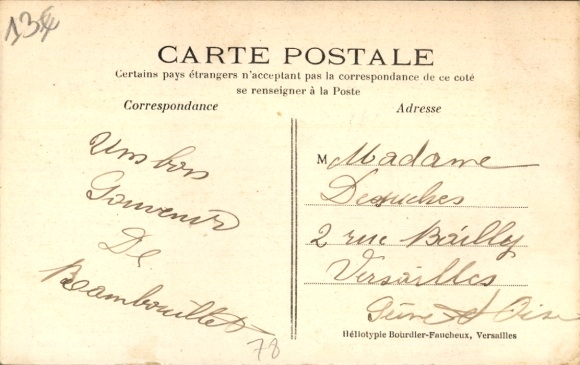 134
CARTE POSTALE
Certains pays étrangers n'acceptant pas la correspondance de ce coté
se renseigner à la Poste
Correspondance
Adresse
Un bon
Souvenir
De
Rambouillet
78
M Madame
2 rue Bailly
Versailles
Seine et Oise
Héliotypie Bourdier-Faucheux, Versailles